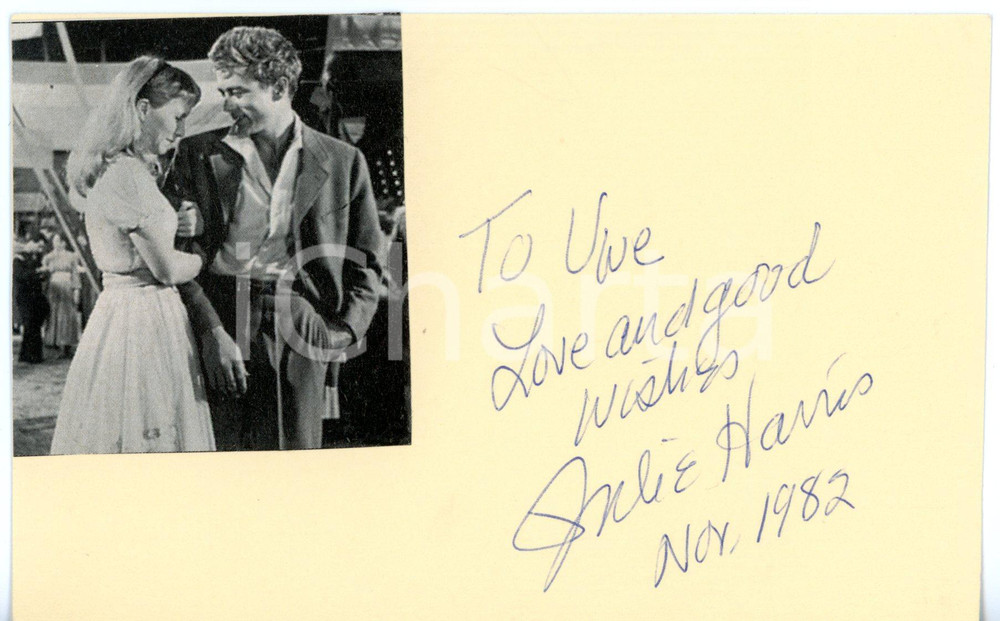 To Uwe
Love and good
wishes
Julie Harris
Nov. 1982
iCharta